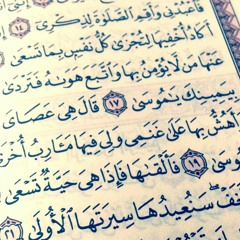 فَٱعْبُدْنِى وَأَقِمِ ٱلصَّلَوٰةَ لِذِكْرِىٓ ١٤
أَكَادُ أُخْفِيهَا لِتُجْزَىٰ كُلُّ نَفْسٍۭ بِمَا تَسْعَىٰ
عَنْهَا مَن لَّا يُؤْمِنُ بِهَا وَٱتَّبَعَ هَوَىٰهُ فَتَرْدَىٰ
بِيَمِينِكَ يَٰمُوسَىٰ ١٧ قَالَ هِىَ عَصَاىَ
وَأَهُشُّ بِهَا عَلَىٰ غَنَمِى وَلِىَ فِيهَا مَـَٔارِبُ أُخْرَىٰ
١٩ فَأَلْقَىٰهَا فَإِذَا هِىَ حَيَّةٌ تَسْعَىٰ
تَخَفْ سَنُعِيدُهَا سِيرَتَهَا ٱلْأُولَىٰ ٢١